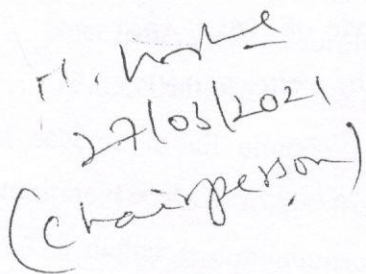 27/03/2021
(Chairperson)